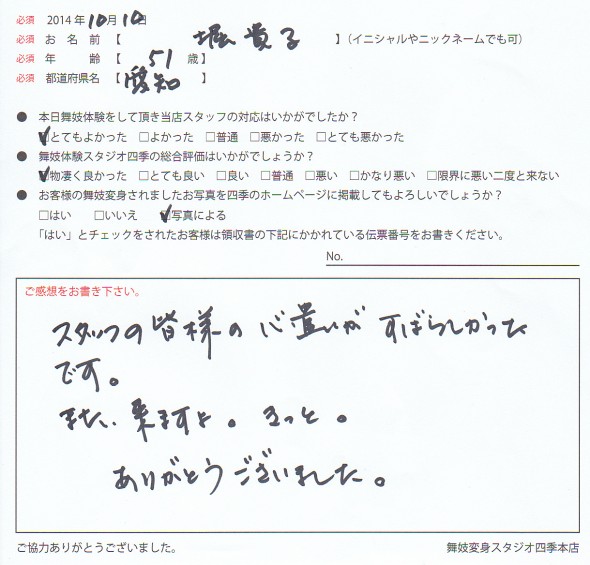 必須 2014年10月10日
必須 お名前【 堀 貴子 】(イニシャルやニックネームでも可)
必須 年齢【 51 歳】
必須 都道府県名【 愛知 】
● 本日舞妓体験をして頂き当店スタッフの対応はいかがでしたか?
☑とてもよかった □よかった □普通 □悪かった □とても悪かった
● 舞妓体験スタジオ四季の総合評価はいかがでしょうか?
☑物凄く良かった □とても良い □良い □普通 □悪い □かなり悪い □限界に悪い二度と来ない
● お客様の舞妓変身されましたお写真を四季のホームページに掲載してもよろしいでしょうか?
□はい □いいえ ☑写真による
「はい」とチェックをされたお客様は領収書の下記にかかれている伝票番号をお書きください。
No.
ご感想をお書き下さい。
スタッフの皆様の心遣いがすばらしかった
です。
また、来ますよ。きっと。
ありがとうございました。
ご協力ありがとうございました。 舞妓変身スタジオ四季本店